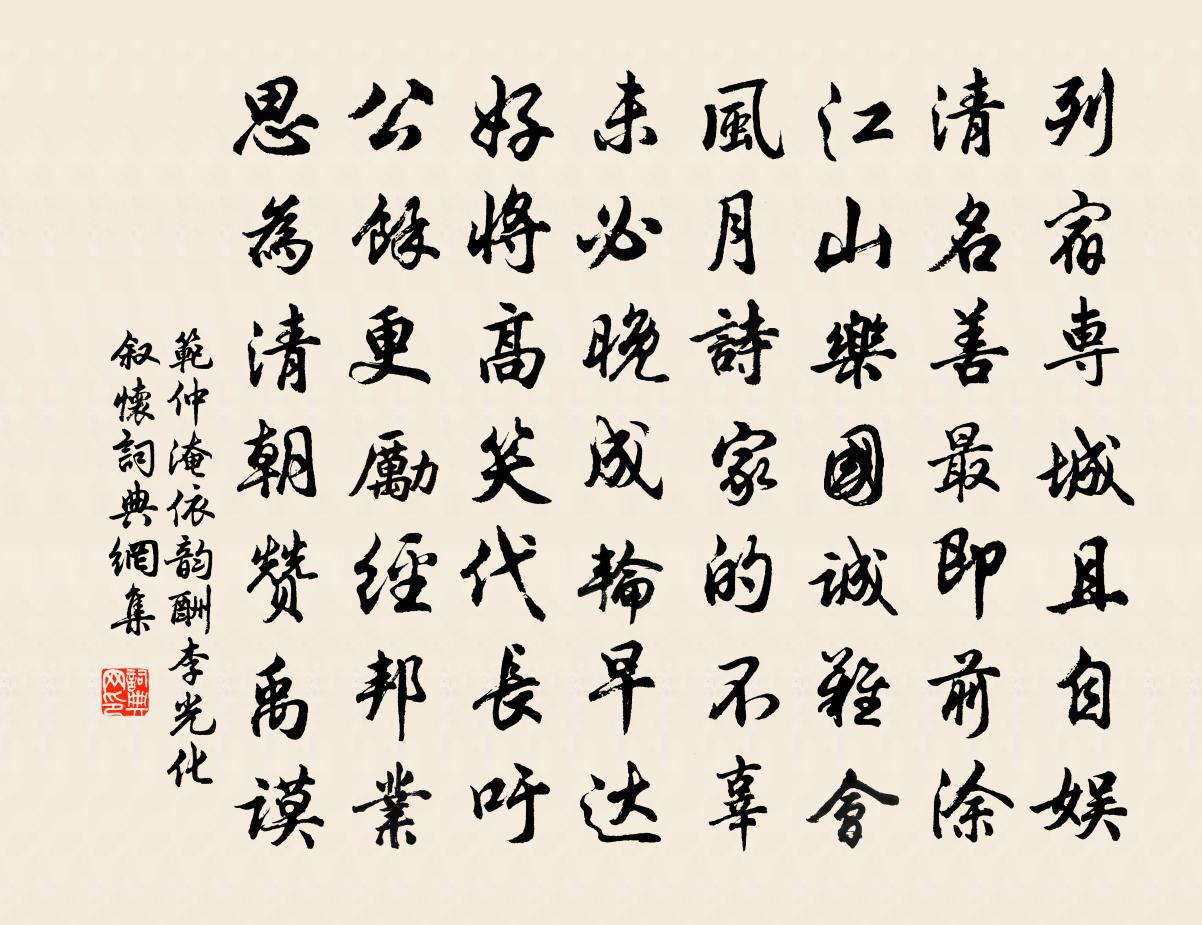 列宿専城且自娱
清名善最即前涂
江山樂國誠難會
風月詩家的不辜
未必晚成輪早达
好將高笑代長吁
公餘更勵經邦業
思為清朝赞禹謨
範仲淹依韵酬李光化
叙懷詞典網集
詞典网印